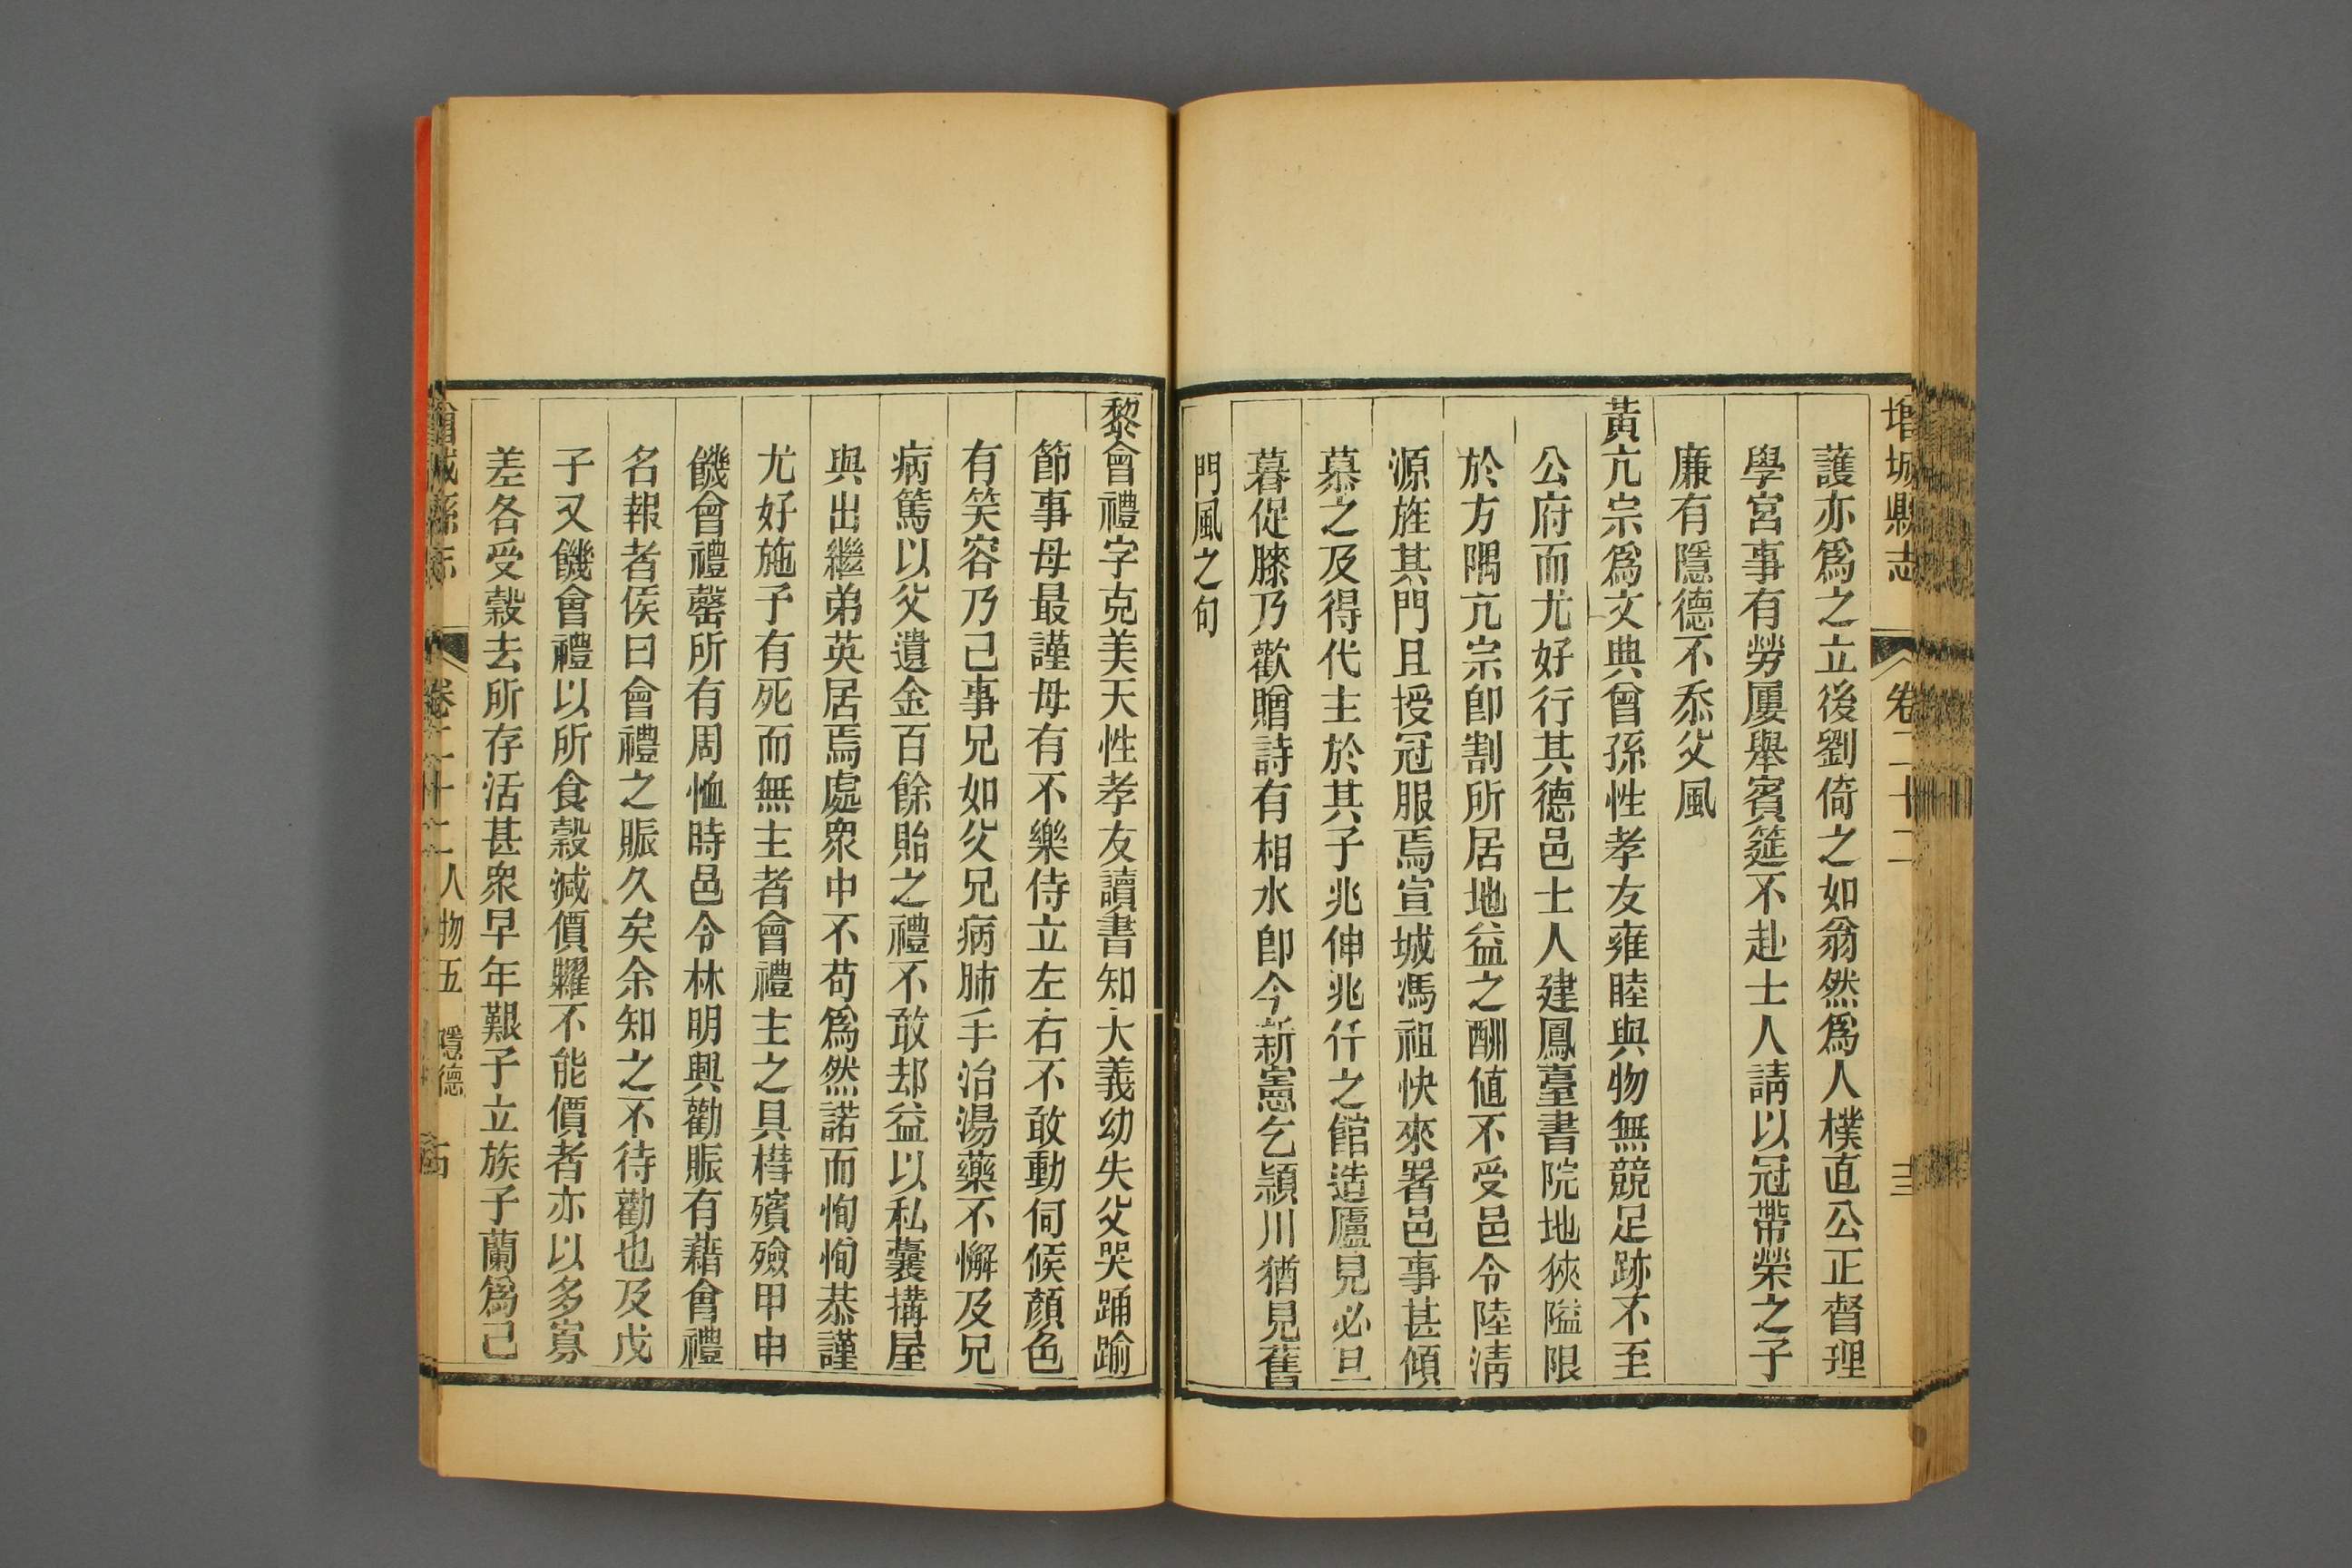 增城縣志 卷二十二 十三
護亦爲之立後劉倚之如翁然爲人樸直公正督理
學宮事有勞屢舉賓筵不赴士人請以冠帶榮之子
廉有隱德不忝父風
黃亢宗爲文典曾孫性孝友雍睦與物無競足跡不至
公府而尤好行其德邑士人建鳳臺書院地狹隘限
於方隅亢宗卽割所居地益之酬値不受邑令陸淸
源旌其門且授冠服焉宣城馮祖快來署邑事甚傾
慕之及得代主於其子兆伸兆仟之館造廬見必旦
暮促膝乃歡贈詩有相水卽今新憲乞潁川猶見舊
門風之句
黎會禮字克美天性孝友讀書知大義幼失父哭踊踰
節事母最謹母有不樂侍立左右不敢動伺候顏色
有笑容乃已事兄如父兄病肺手治湯藥不懈及兄
病篤以父遺金百餘貽之禮不敢却益以私囊搆屋
與出繼弟英居焉處衆中不苟爲然諾而恂恂恭謹
尤好施予有死而無主者會禮主之具槥殯殮甲申
饑會禮罄所有周恤時邑令林明興勸賑有藉會禮
名報者侯曰會禮之賑久矣余知之不待勸也及戊
子又饑會禮以所食穀減價糶不能價者亦以多寡
差各受穀去所存活甚衆早年艱子立族子蘭爲己
卷二十二 人物五 隱德